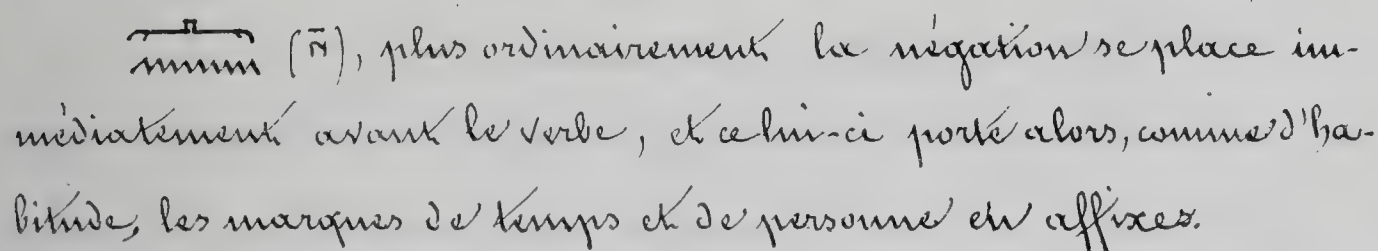 𓂜 (ⲛ̄), plus ordinairement la négation se place im-
médiatement avant le verbe, et celui-ci porte alors, comme d'ha-
bitude, les marques de temps et de personne en affixes.